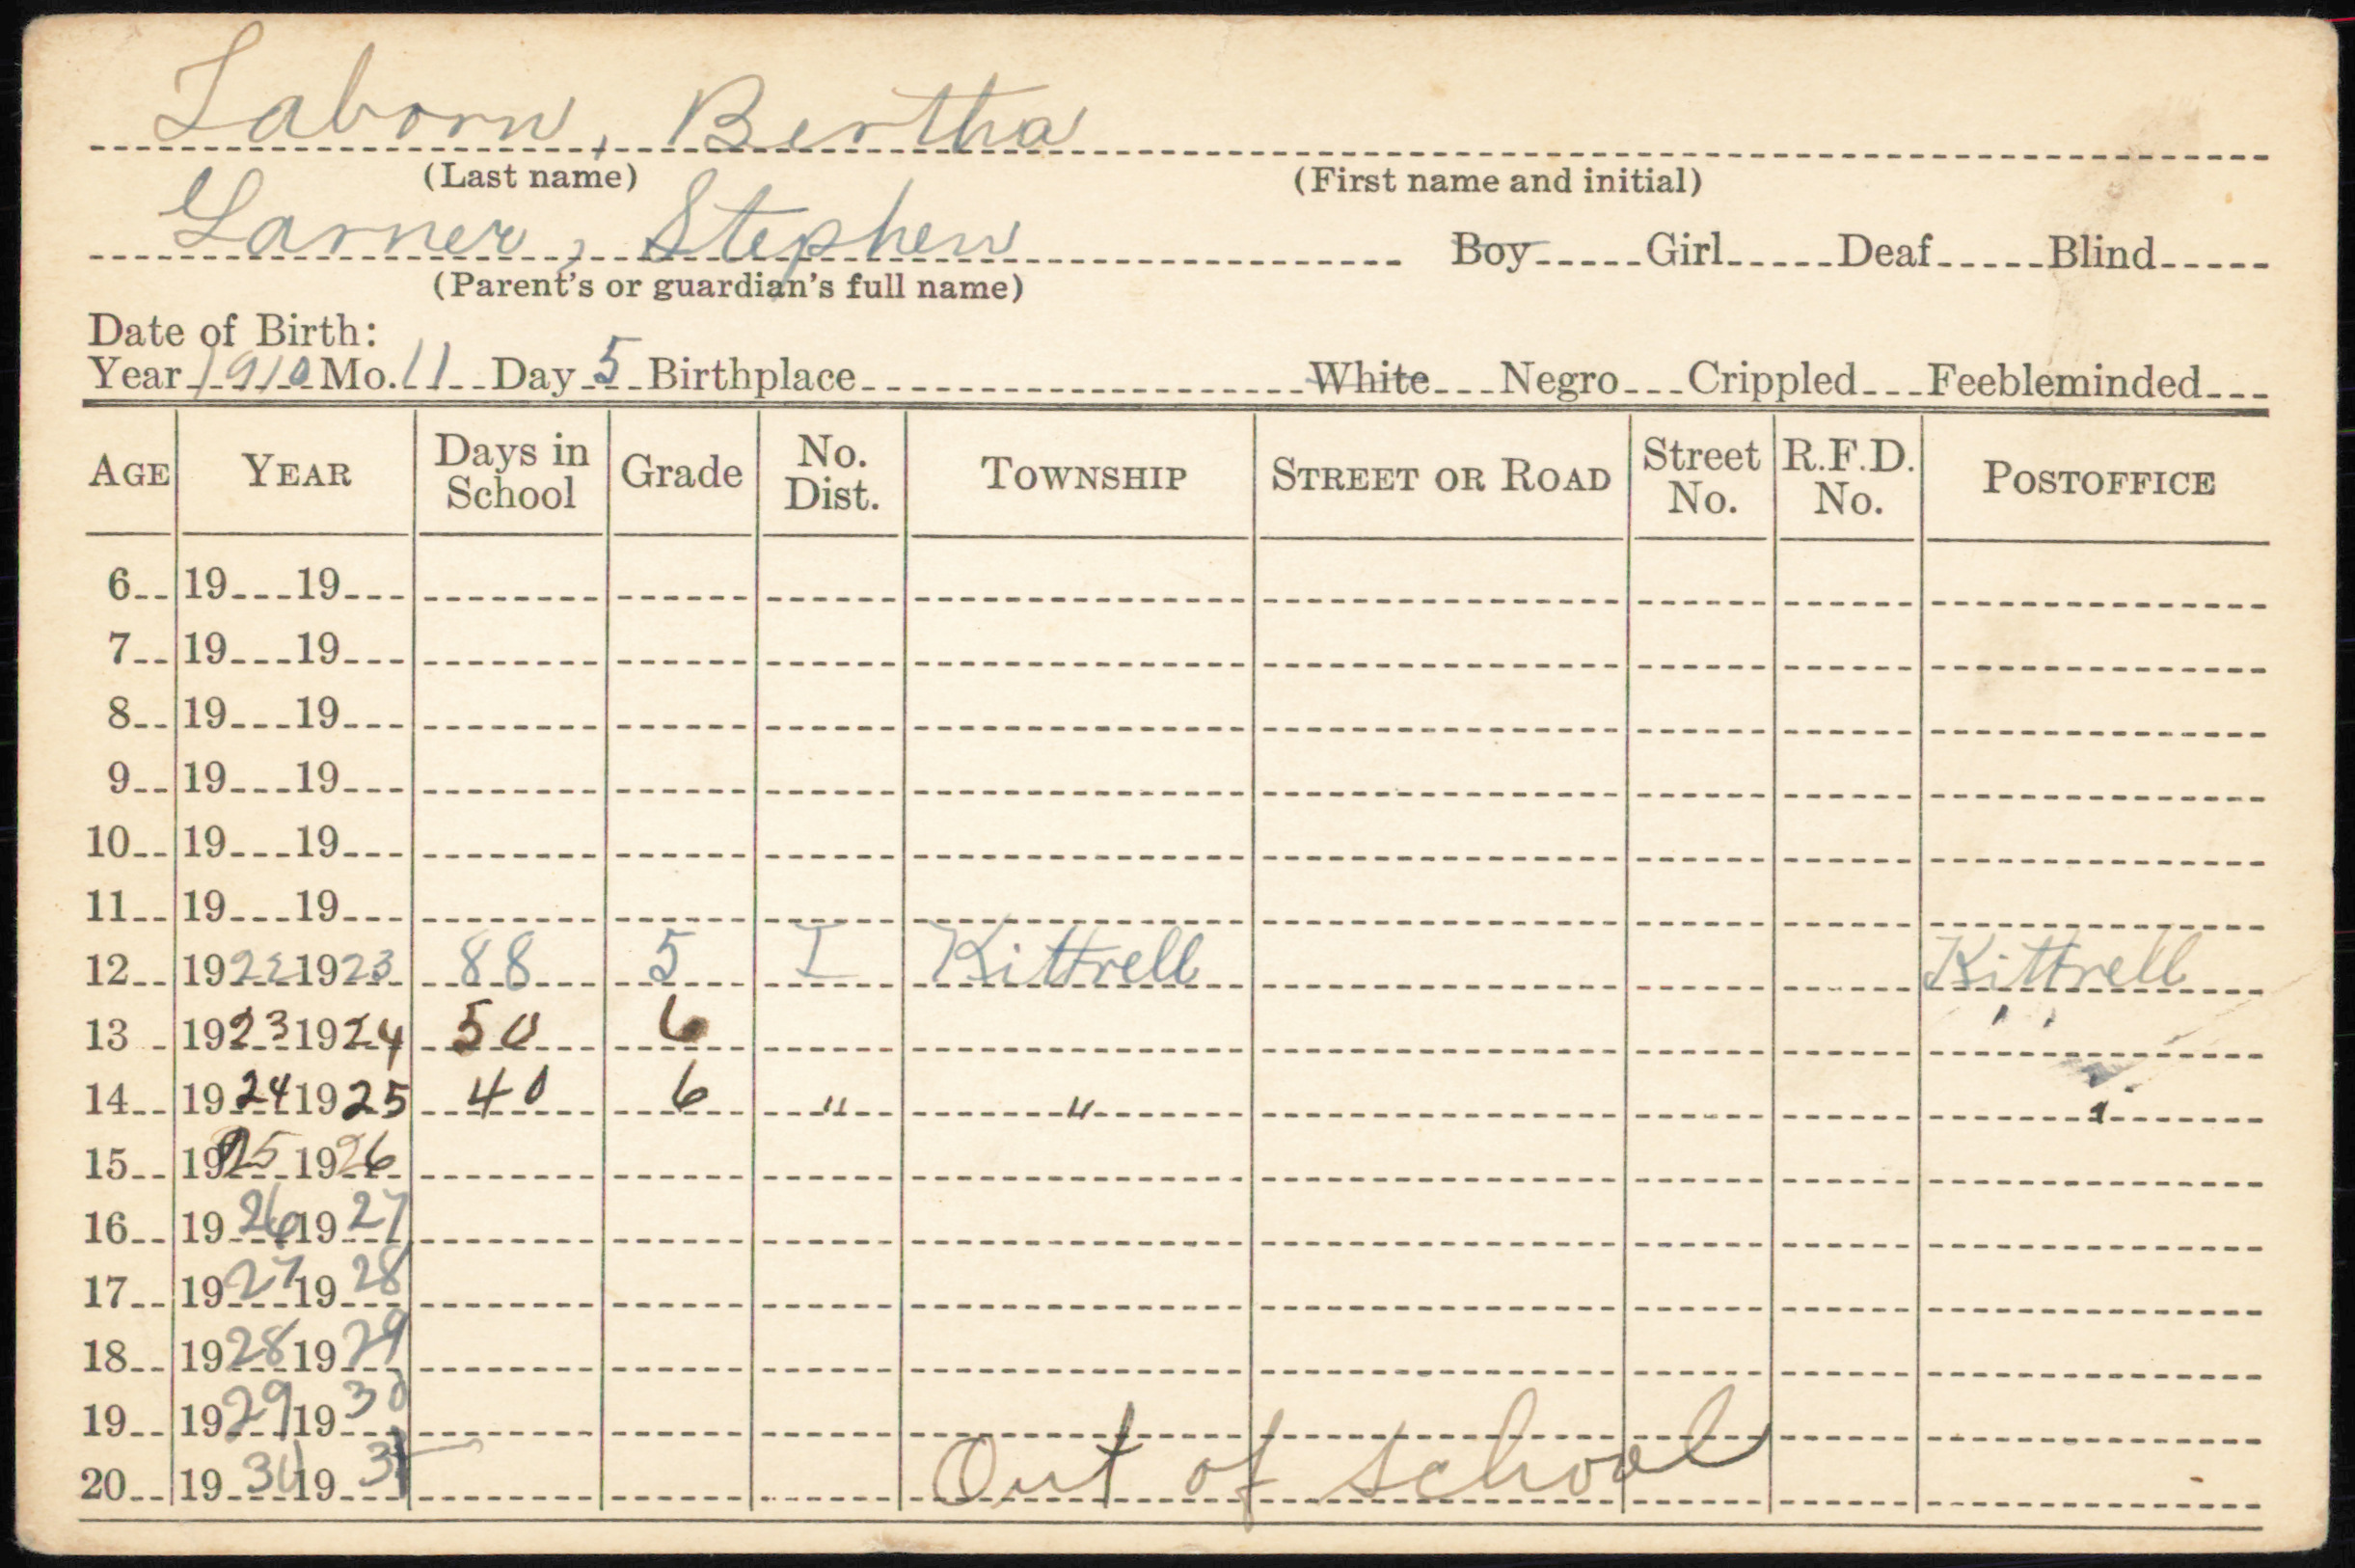 Laborn, Bertha
(Last name) (First name and initial)
Garner, Stephen Boy Girl Deaf Blind
(Parent's or guardian's full name)
Date of Birth:
Year 1910 Mo. 11 Day 5 Birthplace White Negro Crippled Feebleminded
AGE YEAR Days in School Grade No. Dist. TOWNSHIP STREET OR ROAD Street No. R.F.D. No. POSTOFFICE
6 19 19
7 19 19
8 19 19
9 19 19
10 19 19
11 19 19
12 1922 1923 88 5 I Kittrell Kittrell
13 1923 1924 50 6 "
14 1924 1925 40 6 " " "
15 1925 1926
16 1926 1927
17 1927 1928
18 1928 1929
19 1929 1930
20 1930 1931 Out of school